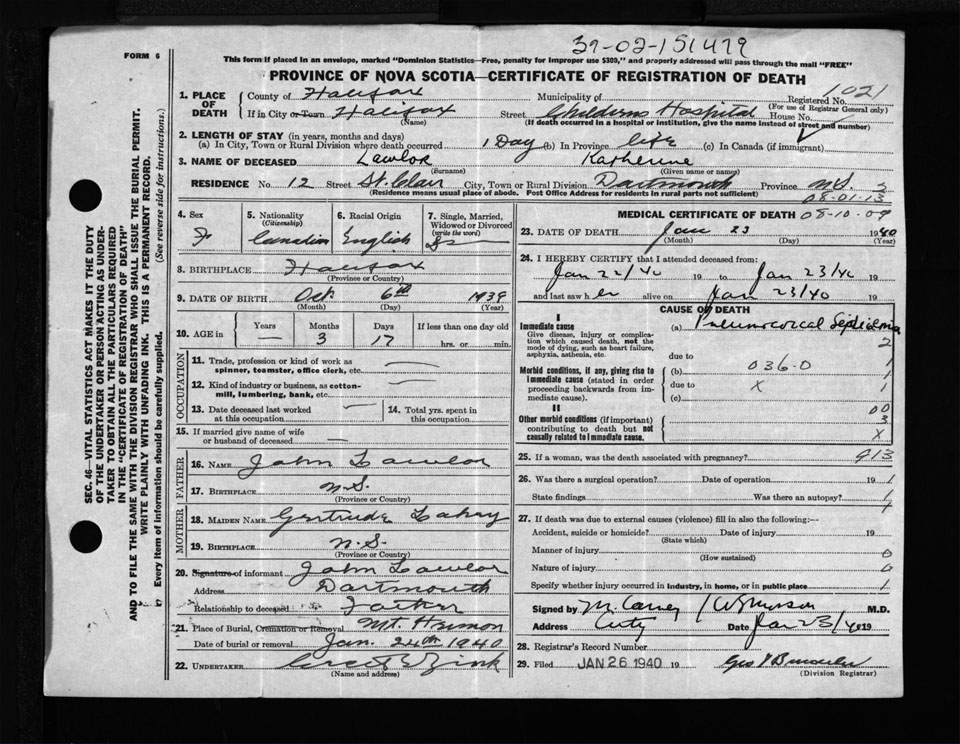 37-02-151479
FORM 6
This form if placed in an envelope, marked "Dominion Statistics—Free, penalty for improper use $300," and properly addressed will pass through the mail "FREE"
PROVINCE OF NOVA SCOTIA—CERTIFICATE OF REGISTRATION OF DEATH
SEC. 46—VITAL STATISTICS ACT MAKES IT THE DUTY
OF THE UNDERTAKER OR PERSON ACTING AS UNDER-
TAKER TO OBTAIN ALL THE PARTICULARS REQUIRED
IN THE "CERTIFICATE OF REGISTRATION OF DEATH"
AND TO FILE THE SAME WITH THE DIVISION REGISTRAR WHO SHALL ISSUE THE BURIAL PERMIT.
WRITE PLAINLY WITH UNFADING INK. THIS IS A PERMANENT RECORD.
Every item of information should be carefully supplied. (See reverse side for instructions.)
1. PLACE OF DEATH
County of Halifax Municipality of Registered No. 1021
(For use of Registrar General only)
If in City or Town Halifax Street Childrens Hospital House No.
(Name) (If death occurred in a hospital or institution, give the name instead of street and number)
2. LENGTH OF STAY (in years, months and days)
(a) In City, Town or Rural Division where death occurred 1 Day (b) In Province life (c) In Canada (if immigrant)
3. NAME OF DECEASED Lawlor Katherine
(Surname) (Given name or names)
RESIDENCE No. 12 Street St. Clair City, Town or Rural Division Dartmouth Province N.S. 3
(Residence means usual place of abode. Post Office Address for residents in rural parts not sufficient) 08-01-13
4. Sex
F
5. Nationality
(Citizenship)
Canadian
6. Racial Origin
English
7. Single, Married,
Widowed or Divorced
(write the word)
8. BIRTHPLACE Halifax
(Province or Country)
9. DATE OF BIRTH Oct. 6th 1939
(Month) (Day) (Year)
10. AGE in
Years Months Days If less than one day old
— 3 17 hrs. or min.
OCCUPATION
11. Trade, profession or kind of work as
spinner, teamster, office clerk, etc. —
12. Kind of industry or business, as cotton-
mill, lumbering, bank, etc. —
13. Date deceased last worked
at this occupation —
14. Total yrs. spent in
this occupation
15. If married give name of wife
or husband of deceased —
FATHER
16. NAME John Lawlor
17. BIRTHPLACE N.S.
(Province or Country)
MOTHER
18. MAIDEN NAME Gertrude Lahey
19. BIRTHPLACE N.S.
(Province or Country)
20. Signature of informant John Lawlor
Address Dartmouth
Relationship to deceased Father
21. Place of Burial, Cremation or Removal Mt. Hermon
Date of burial or removal Jan. 24th 1940
22. UNDERTAKER Zink
(Name and address)
MEDICAL CERTIFICATE OF DEATH 08-10-09
23. DATE OF DEATH Jan 23 1940
(Month) (Day) (Year)
24. I HEREBY CERTIFY that I attended deceased from:
Jan 22/40 19 to Jan 23/40 19
and last saw h er alive on Jan 23/40 19
CAUSE OF DEATH
I
Immediate cause
Give disease, injury or complica-
tion which caused death, not the
mode of dying, such as heart failure,
asphyxia, asthenia, etc.
(a) Pneumococcal Septicemia
2
due to
Morbid conditions, if any, giving rise to
Immediate cause (stated in order
proceeding backwards from im-
mediate cause).
(b) 036.0 1
due to X 1
(c)
II
Other morbid conditions (if important)
contributing to death but not
causally related to immediate cause.
00
3
X
25. If a woman, was the death associated with pregnancy? 913
26. Was there a surgical operation? Date of operation 19 1
State findings Was there an autopsy? 1
27. If death was due to external causes (violence) fill in also the following:—
Accident, suicide or homicide? Date of injury 19
(State which)
Manner of injury 0
(How sustained)
Nature of injury 0
Specify whether injury occurred in industry, in home, or in public place 1
Signed by M. Carney / M.D.
Address City Date Jan 23/40 19
28. Registrar's Record Number
29. Filed JAN 26 1940 19
(Division Registrar)